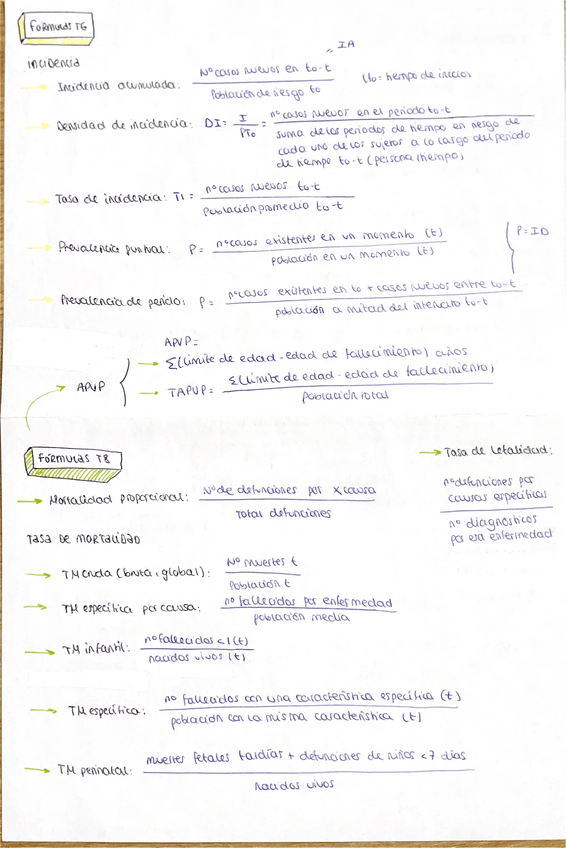 Formulas T6
incidencia
" IA
Incidencia acumulada: Nº casos nuevos en to-t / Población de riesgo to (to = tiempo de inicio)
Densidad de incidencia: DI = I / PTo = nº casos nuevos en el periodo to-t / suma de los periodos de tiempo en riesgo de
cada uno de los sujetos a lo largo del periodo
de tiempo to-t (persona/tiempo)
Tasa de incidencia: TI = nº casos nuevos to-t / población promedio to-t
Prevalencia puntual: P = nº casos existentes en un momento (t) / población en un momento (t)
P = ID
Prevalencia de periodo: P = nº casos existentes en to + casos nuevos entre to-t / población a mitad del intervalo to-t
APVP
APVP =
Σ(Límite de edad - edad de fallecimiento) años
TAPVP = Σ(Límite de edad - edad de fallecimiento) / población total
Formulas T8
Tasa de Letalidad:
nº defunciones por
causas específicas
nº diagnósticos
por esa enfermedad
Mortalidad proporcional: Nº de defunciones por x causa / Total defunciones
TASA DE MORTALIDAD
TM cruda (bruta, global): Nº muertes t / Población t
TM específica por causa: nº fallecidos por enfermedad / población media
TM infantil: nº fallecidos <1 (t) / nacidos vivos (t)
TM específica: nº fallecidos con una característica específica (t) / población con la misma característica (t)
TM perinatal: muertes fetales tardías + defunciones de niños <7 días / Nacidos vivos